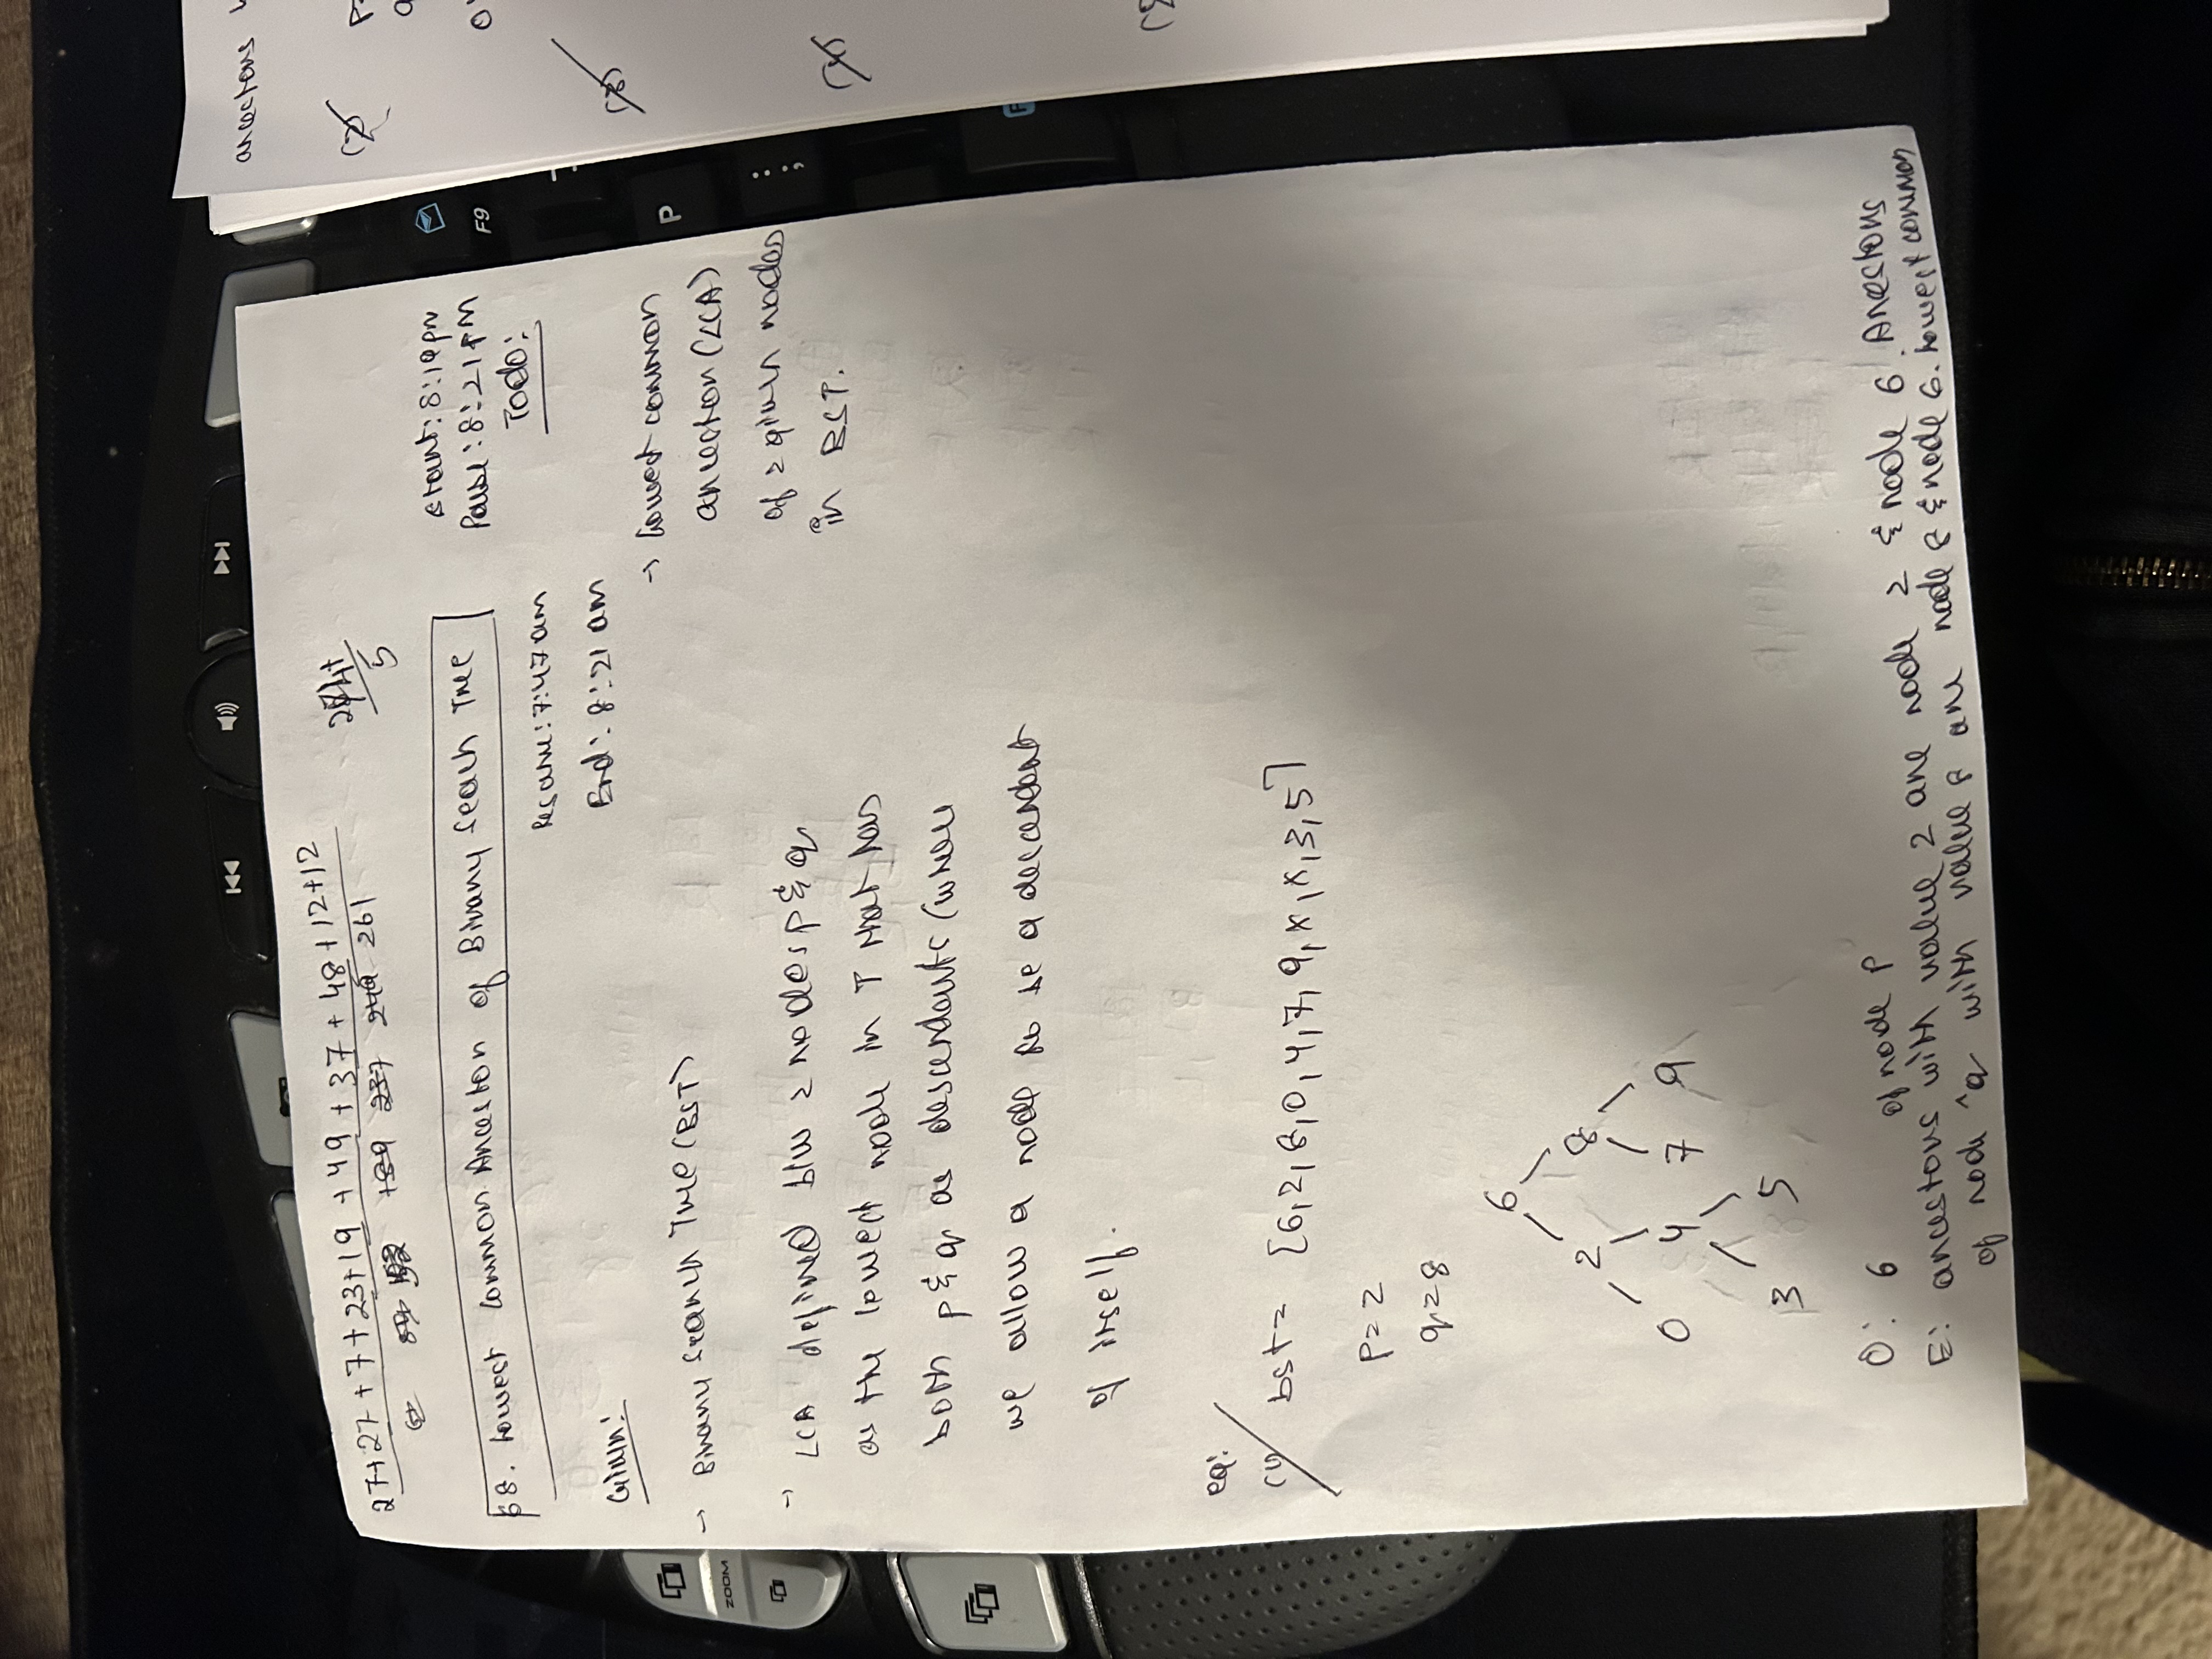 27+27+7+23+19+49+37+48+12+12
189 237 249 261
5
68. Lowest Common Ancestor of Binary Seach Tree
Start: 8:19pm
Pause: 8:21PM
Todo:
Resume: 7:47am
End: 8:21 am
Given:
→ Binary Search Tree (BST)
→ LCA defined b/w 2 nodes p & q
as the lowest node in T that has
both p & q as descendants (where
we allow a node to be a descendant
of itself.
→ Lowest common
ancestor (LCA)
of 2 given nodes
in BST.
eg:
(1) bst = [6,2,8,0,4,7,9,x,x,3,5]
p=2
q=8
6
2 8
0 4 7 9
3 5
O: 6
of node p
E: ancestors with value 2 are node 2 & node 6. Ancestors
of node ^q with value 8 are node 8 & node 6. Lowest common
ancestors
(2)
(3)
ZOOM
F9
P
:
;